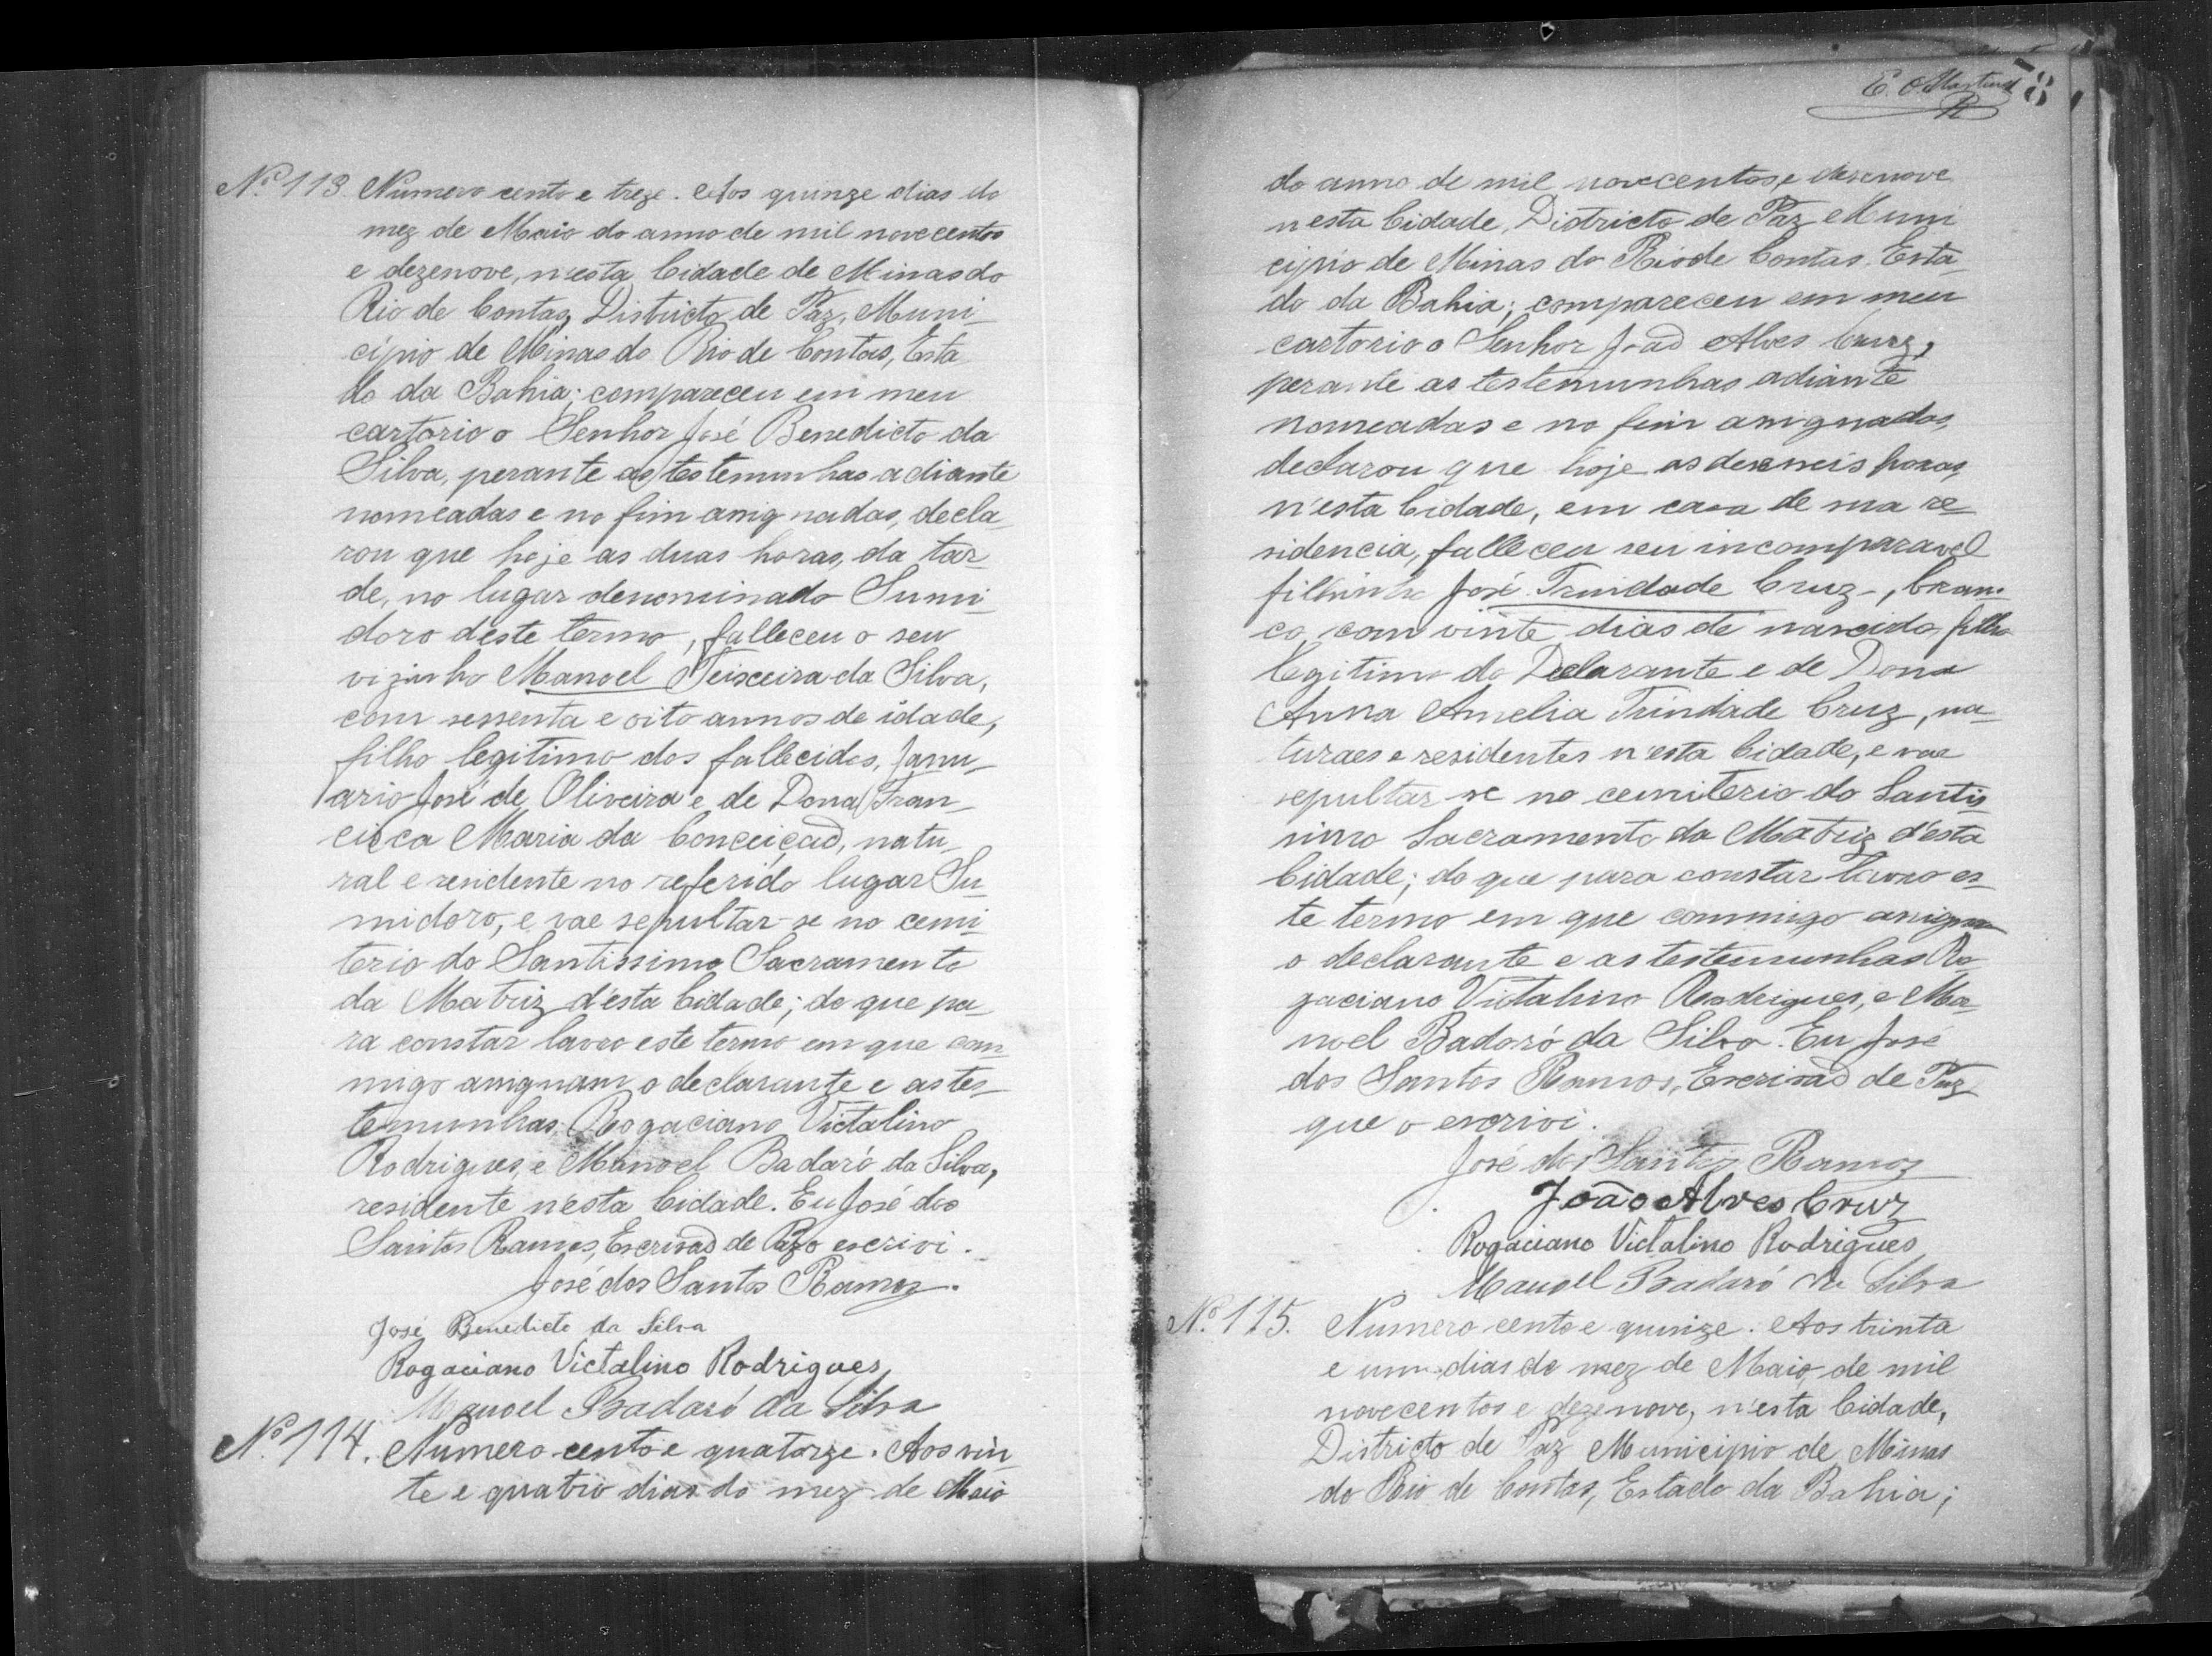 Nº 113. Numero cento e treze. Aos quinze dias do
mez de Maio do anno de mil novecentos
e dezenove, n'esta Cidade de Minas do
Rio de Contas, Districto de Paz, Muni-
cipio de Minas do Rio de Contas, Esta-
do da Bahia; compareceu em meu
cartorio o Senhor José Benedicto da
Silva, perante as testemunhas adiante
nomeadas e no fim assignadas, decla-
rou que hoje as duas horas, da tar-
de, no lugar denominado Sumi-
doro deste termo, falleceu o seu
vizinho Manoel Teixeira da Silva,
com sessenta e oito annos de idade,
filho legitimo dos fallecidos, Janu-
ario José de Oliveira e de Dona Fran-
cisca Maria da Conceição, natu-
ral e residente no referido lugar Su-
midoro, e vae sepultar-se no cemi-
terio do Santissimo Sacramento
da Matriz d'esta Cidade; do que pa-
ra constar lavro este termo em que com-
migo assignam o declarante e as tes-
temunhas Rogaciano Victalino
Rodrigues, e Manoel Badaró da Silva,
residente n'esta Cidade. Eu José dos
Santos Ramos, Escrivão de Paz o escrivi.
José dos Santos Ramos.
José Benedicto da Silva
Rogaciano Victalino Rodrigues
Manoel Badaró da Silva
Nº 114. Numero cento e quatorze. Aos vin-
te e quatro dias do mez de Maio
E. Martins 78
do anno de mil novecentos e desenove
n'esta Cidade, Districto de Paz e Muni
cipio de Minas do Rio de Contas. Esta-
do da Bahia; compareceu em meu
cartorio o Senhor João Alves Cruz,
perante as testemunhas adiante
nomeadas e no fim assignadas,
declarou que hoje as deseseis horas,
n'esta Cidade, em casa de sua re-
sidencia, falleceu seu incomparavel
filhinho José Trindade Cruz, bran-
co, com vinte dias de nascido, filho
legitimo do Declarante e de Dona
Anna Amelia Trindade Cruz, na-
turaes e residentes n'esta Cidade, e vae
sepultar-se no cemiterio do Santis-
simo Sacramento da Matriz d'esta
Cidade; do que para constar lavro es-
te termo em que commigo assigna
o declarante e as testemunhas Ro-
gaciano Victalino Rodrigues, e Ma-
noel Badaró da Silva. Eu José
dos Santos Ramos, Escrivão de Paz
que o escrivi.
José dos Santos Ramos
João Alves Cruz
Rogaciano Victalino Rodrigues
Manoel Badaró da Silva
Nº 115. Numero cento e quinze. Aos trinta
e um dias do mez de Maio, de mil
novecentos e dezenove, n'esta Cidade,
Districto de Paz Municipio de Minas
do Rio de Contas, Estado da Bahia;